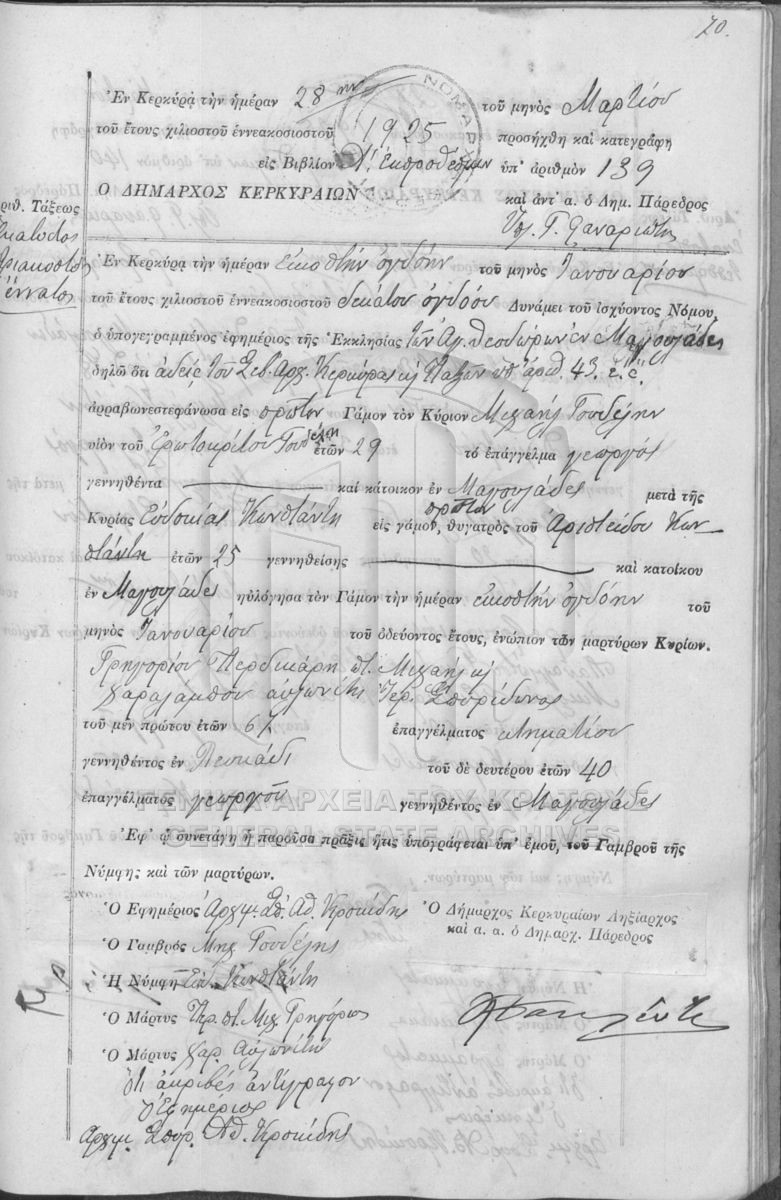 70.
Ἐν Κερκύρᾳ τὴν ἡμέραν 28ην τοῦ μηνὸς Μαρτίου
τοῦ ἔτους χιλιοστοῦ ἐννεακοσιοστοῦ 1925 προσήχθη καὶ κατεγράφη
εἰς Βιβλίον Α΄ Ἐκπροθέσμων ὑπ' ἀριθμὸν 139
Ο ΔΗΜΑΡΧΟΣ ΚΕΡΚΥΡΑΙΩΝ καὶ ἀντ' α. ὁ Δημ. Πάρεδρος
Γ. Φαναριώτης
ριθ. Τάξεως
Ἑκατοστὸς
τριακοστὸς
ἔννατος
Ἐν Κερκύρᾳ τὴν ἡμέραν εἰκοστὴν ὀγδόην τοῦ μηνὸς Ἰανουαρίου
τοῦ ἔτους χιλιοστοῦ ἐννεακοσιοστοῦ δεκάτου ὀγδόου Δυνάμει τοῦ ἰσχύοντος Νόμου,
ὁ ὑπογεγραμμένος ἐφημέριος τῆς Ἐκκλησίας τῶν Ἁγ. Θεοδώρων ἐν Μαγουλάδες
δηλῶ ὅτι ἀδείᾳ τοῦ Σεβ. Ἀρχ. Κερκύρας καὶ Παξῶν ὑπ' ἀριθ. 43. ἐ. ἔ.
ἀρραβωνεστεφάνωσα εἰς πρῶτον Γάμον τὸν Κύριον Μιχαὴλ Γουδέλην
υἱὸν τοῦ Ἐρωτοκρίτου Γουδέλη ἐτῶν 29 τὸ ἐπάγγελμα γεωργὸς
γεννηθέντα καὶ κάτοικον ἐν Μαγουλάδες μετὰ τῆς
Κυρίας Εὐδοκίας Κωνστάντη πρῶτον εἰς γάμον, θυγατρὸς τοῦ Ἀριστείδου Κων-
στάντη ἐτῶν 25 γεννηθείσης καὶ κατοίκου
ἐν Μαγουλάδες ηὐλόγησα τὸν Γάμον τὴν ἡμέραν εἰκοστὴν ὀγδόην τοῦ
μηνὸς Ἰανουαρίου τοῦ ὁδεύοντος ἔτους, ἐνώπιον τῶν μαρτύρων Κυρίων.
Γρηγορίου Περδικάρη π. Μιχαὴλ καὶ
Χαραλάμπου Αὐλωνίτη Ἱερ. Σπυρίδωνος
τοῦ μὲν πρώτου ἐτῶν 67 ἐπαγγέλματος κτηματίου
γεννηθέντος ἐν τοῦ δὲ δευτέρου ἐτῶν 40
ἐπαγγέλματος γεωργοῦ γεννηθέντος ἐν Μαγουλάδες
ΓΕΝΙΚΑ ΑΡΧΕΙΑ ΤΟΥ ΚΡΑΤΟΥΣ
GENERAL STATE ARCHIVES
Ἐφ' ᾧ συνετάγη ἡ παροῦσα πρᾶξις ἥτις ὑπογράφεται ὑπ' ἐμοῦ, τοῦ Γαμβροῦ τῆς
Νύμφης καὶ τῶν μαρτύρων.
Ὁ Ἐφημέριος Ἀρχιμ. Σπ. Ἀθ. Κροκίδης
Ὁ Δήμαρχος Κερκυραίων Ληξίαρχος
καὶ α. α. ὁ Δημαρχ. Πάρεδρος
Ὁ Γαμβρὸς Μιχ. Γουδέλης
Ἡ Νύμφη Εὐδ. Κωνστάντη
Ὁ Μάρτυς Περ. π. Μιχ. Γρηγόριος
Ὁ Μάρτυς Χαρ. Αὐλωνίτη
Ὅτι ἀκριβὲς ἀντίγραφον
Ὁ Ἐφημέριος
Ἀρχιμ. Σπυρ. Ἀθ. Κροκίδης